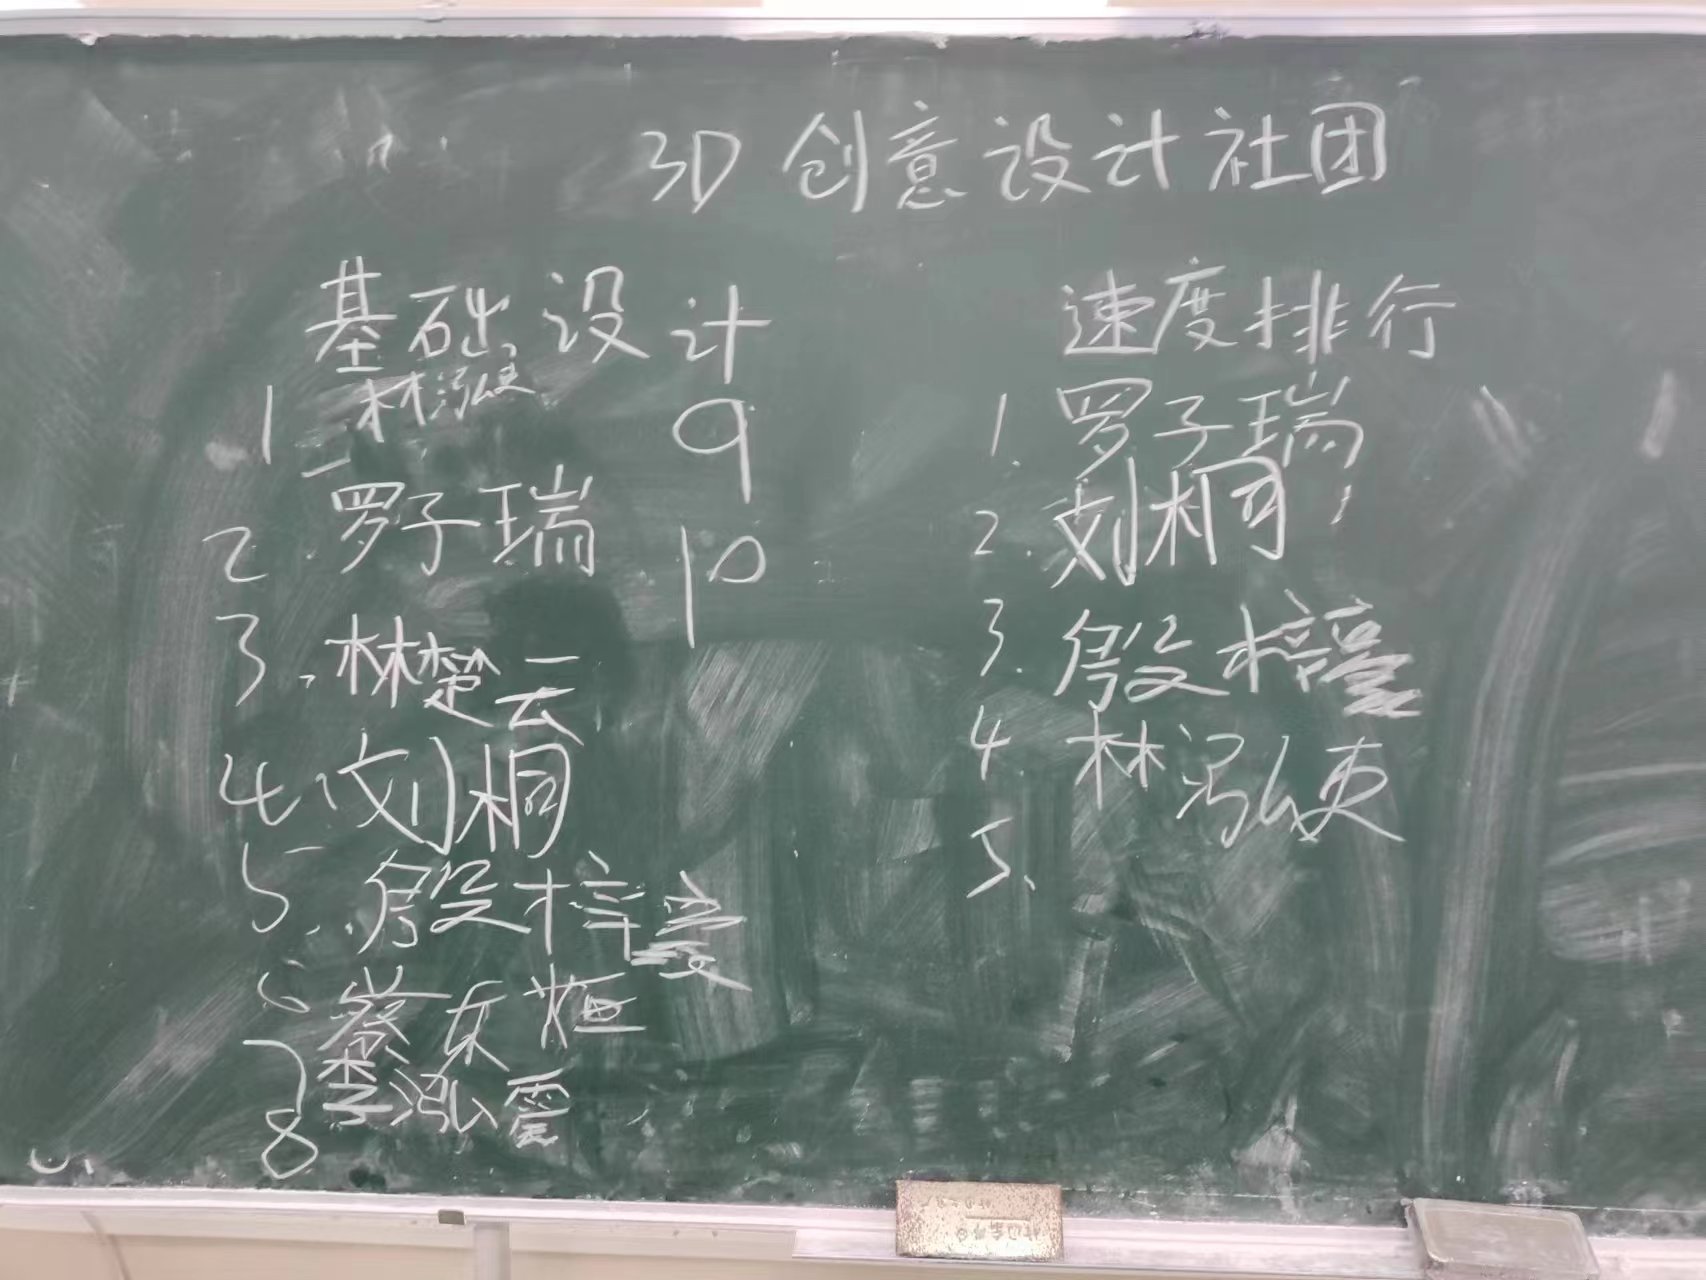 3D 创意设计社团
基础设计
1 林泓吏
2. 罗子瑞
3. 林楚云
4. 刘桐
5. 殷梓
6 蔡东烜
7 李泓震
8
9
10
速度排行
1. 罗子瑞
2. 刘桐
3. 殷梓
4. 林泓吏
5.